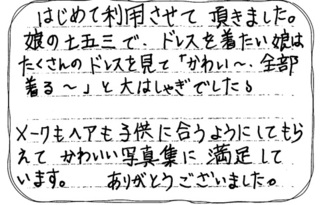 はじめて利用させて 頂きました。
娘の七五三で、ドレスを着たい娘は
たくさんのドレスを見て「かわい〜、全部
着る〜」と大はしゃぎでした。
メークもヘアも子供に合うようにしてもら
えて かわいい写真集に 満足して
います。 ありがとうございました。